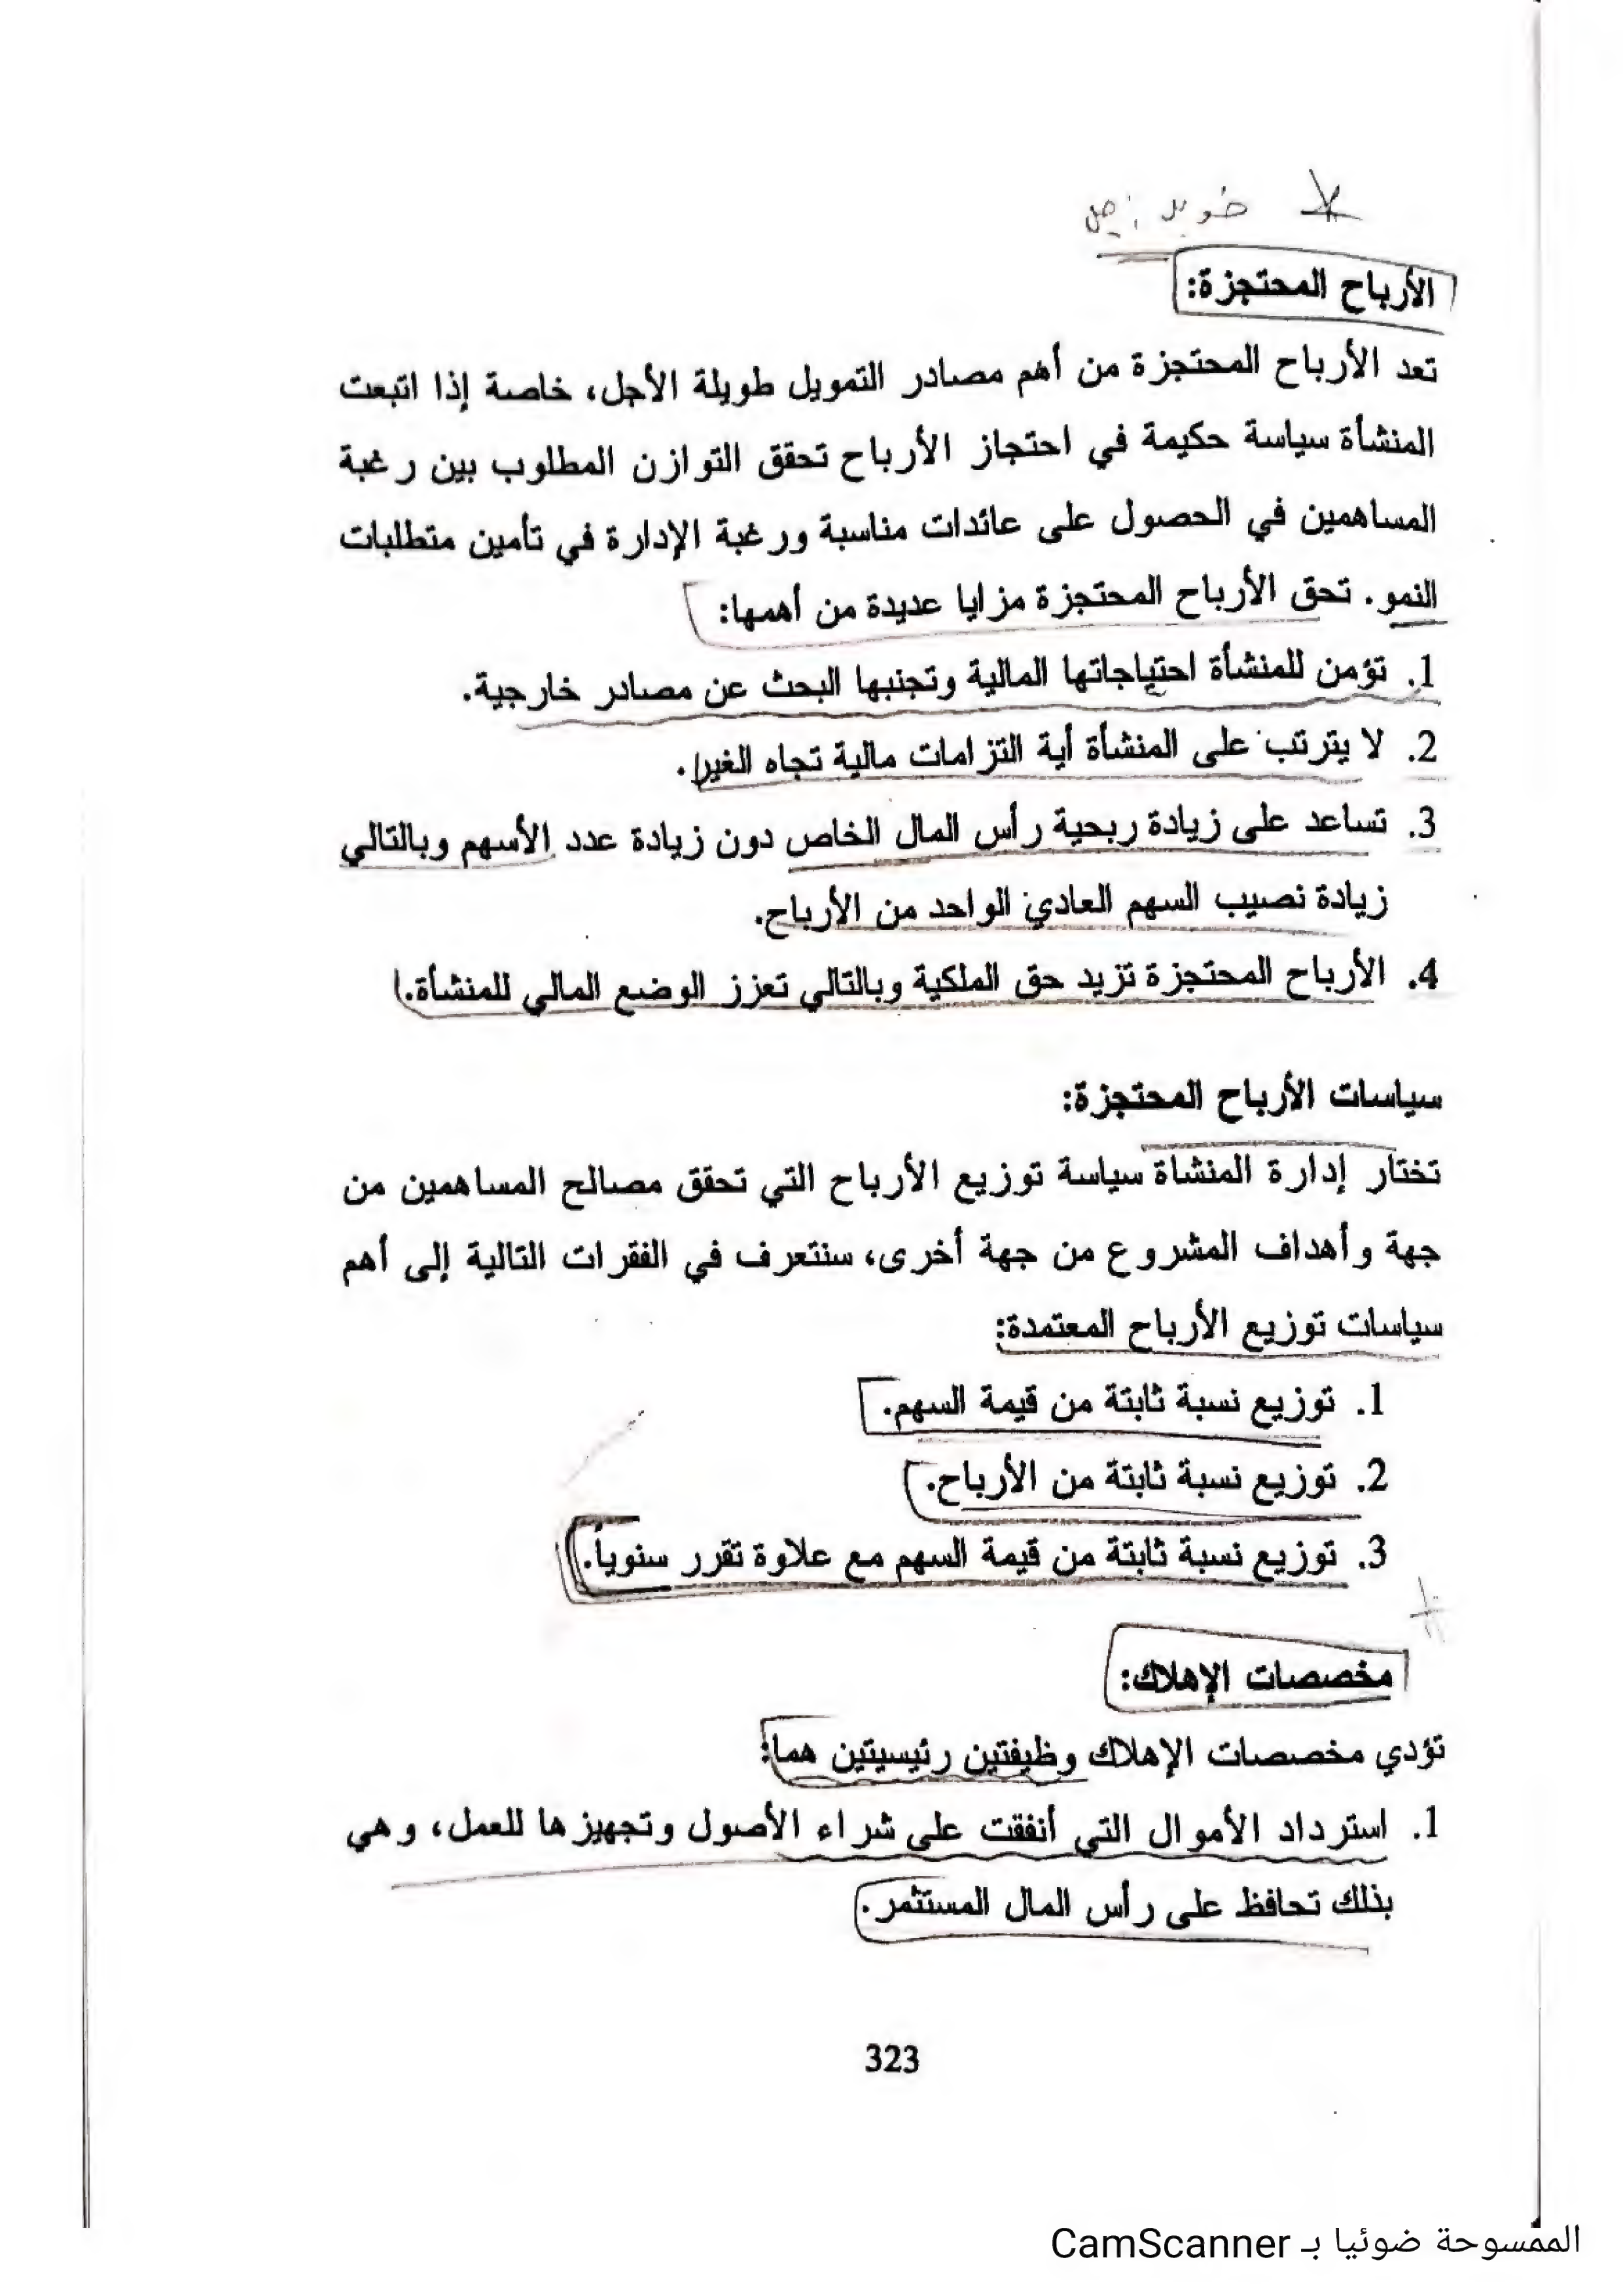 الأرباح المحتجزة:
تعد الأرباح المحتجزة من أهم مصادر التمويل طويلة الأجل، خاصة إذا اتبعت
المنشأة سياسة حكيمة في احتجاز الأرباح تحقق التوازن المطلوب بين رغبة
المساهمين في الحصول على عائدات مناسبة ورغبة الإدارة في تأمين متطلبات
النمو. تحق الأرباح المحتجزة مزايا عديدة من أهمها:
1. تؤمن للمنشأة احتياجاتها المالية وتجنبها البحث عن مصادر خارجية.
2. لا يترتب على المنشأة أية التزامات مالية تجاه الغير.
3. تساعد على زيادة ربحية رأس المال الخاص دون زيادة عدد الأسهم وبالتالي
زيادة نصيب السهم العادي الواحد من الأرباح.
4. الأرباح المحتجزة تزيد حق الملكية وبالتالي تعزز الوضع المالي للمنشأة.
سياسات الأرباح المحتجزة:
تختار إدارة المنشاة سياسة توزيع الأرباح التي تحقق مصالح المساهمين من
جهة وأهداف المشروع من جهة أخرى، سنتعرف في الفقرات التالية إلى أهم
سياسات توزيع الأرباح المعتمدة:
1. توزيع نسبة ثابتة من قيمة السهم.
2. توزيع نسبة ثابتة من الأرباح.
3. توزيع نسبة ثابتة من قيمة السهم مع علاوة تقرر سنوياً.
مخصصات الإهلاك:
تؤدي مخصصات الإهلاك وظيفتين رئيسيتين هما:
1. استرداد الأموال التي أنفقت على شراء الأصول وتجهيزها للعمل، وهي
بذلك تحافظ على رأس المال المستثمر.
323
الممسوحة ضوئيا بـ CamScanner